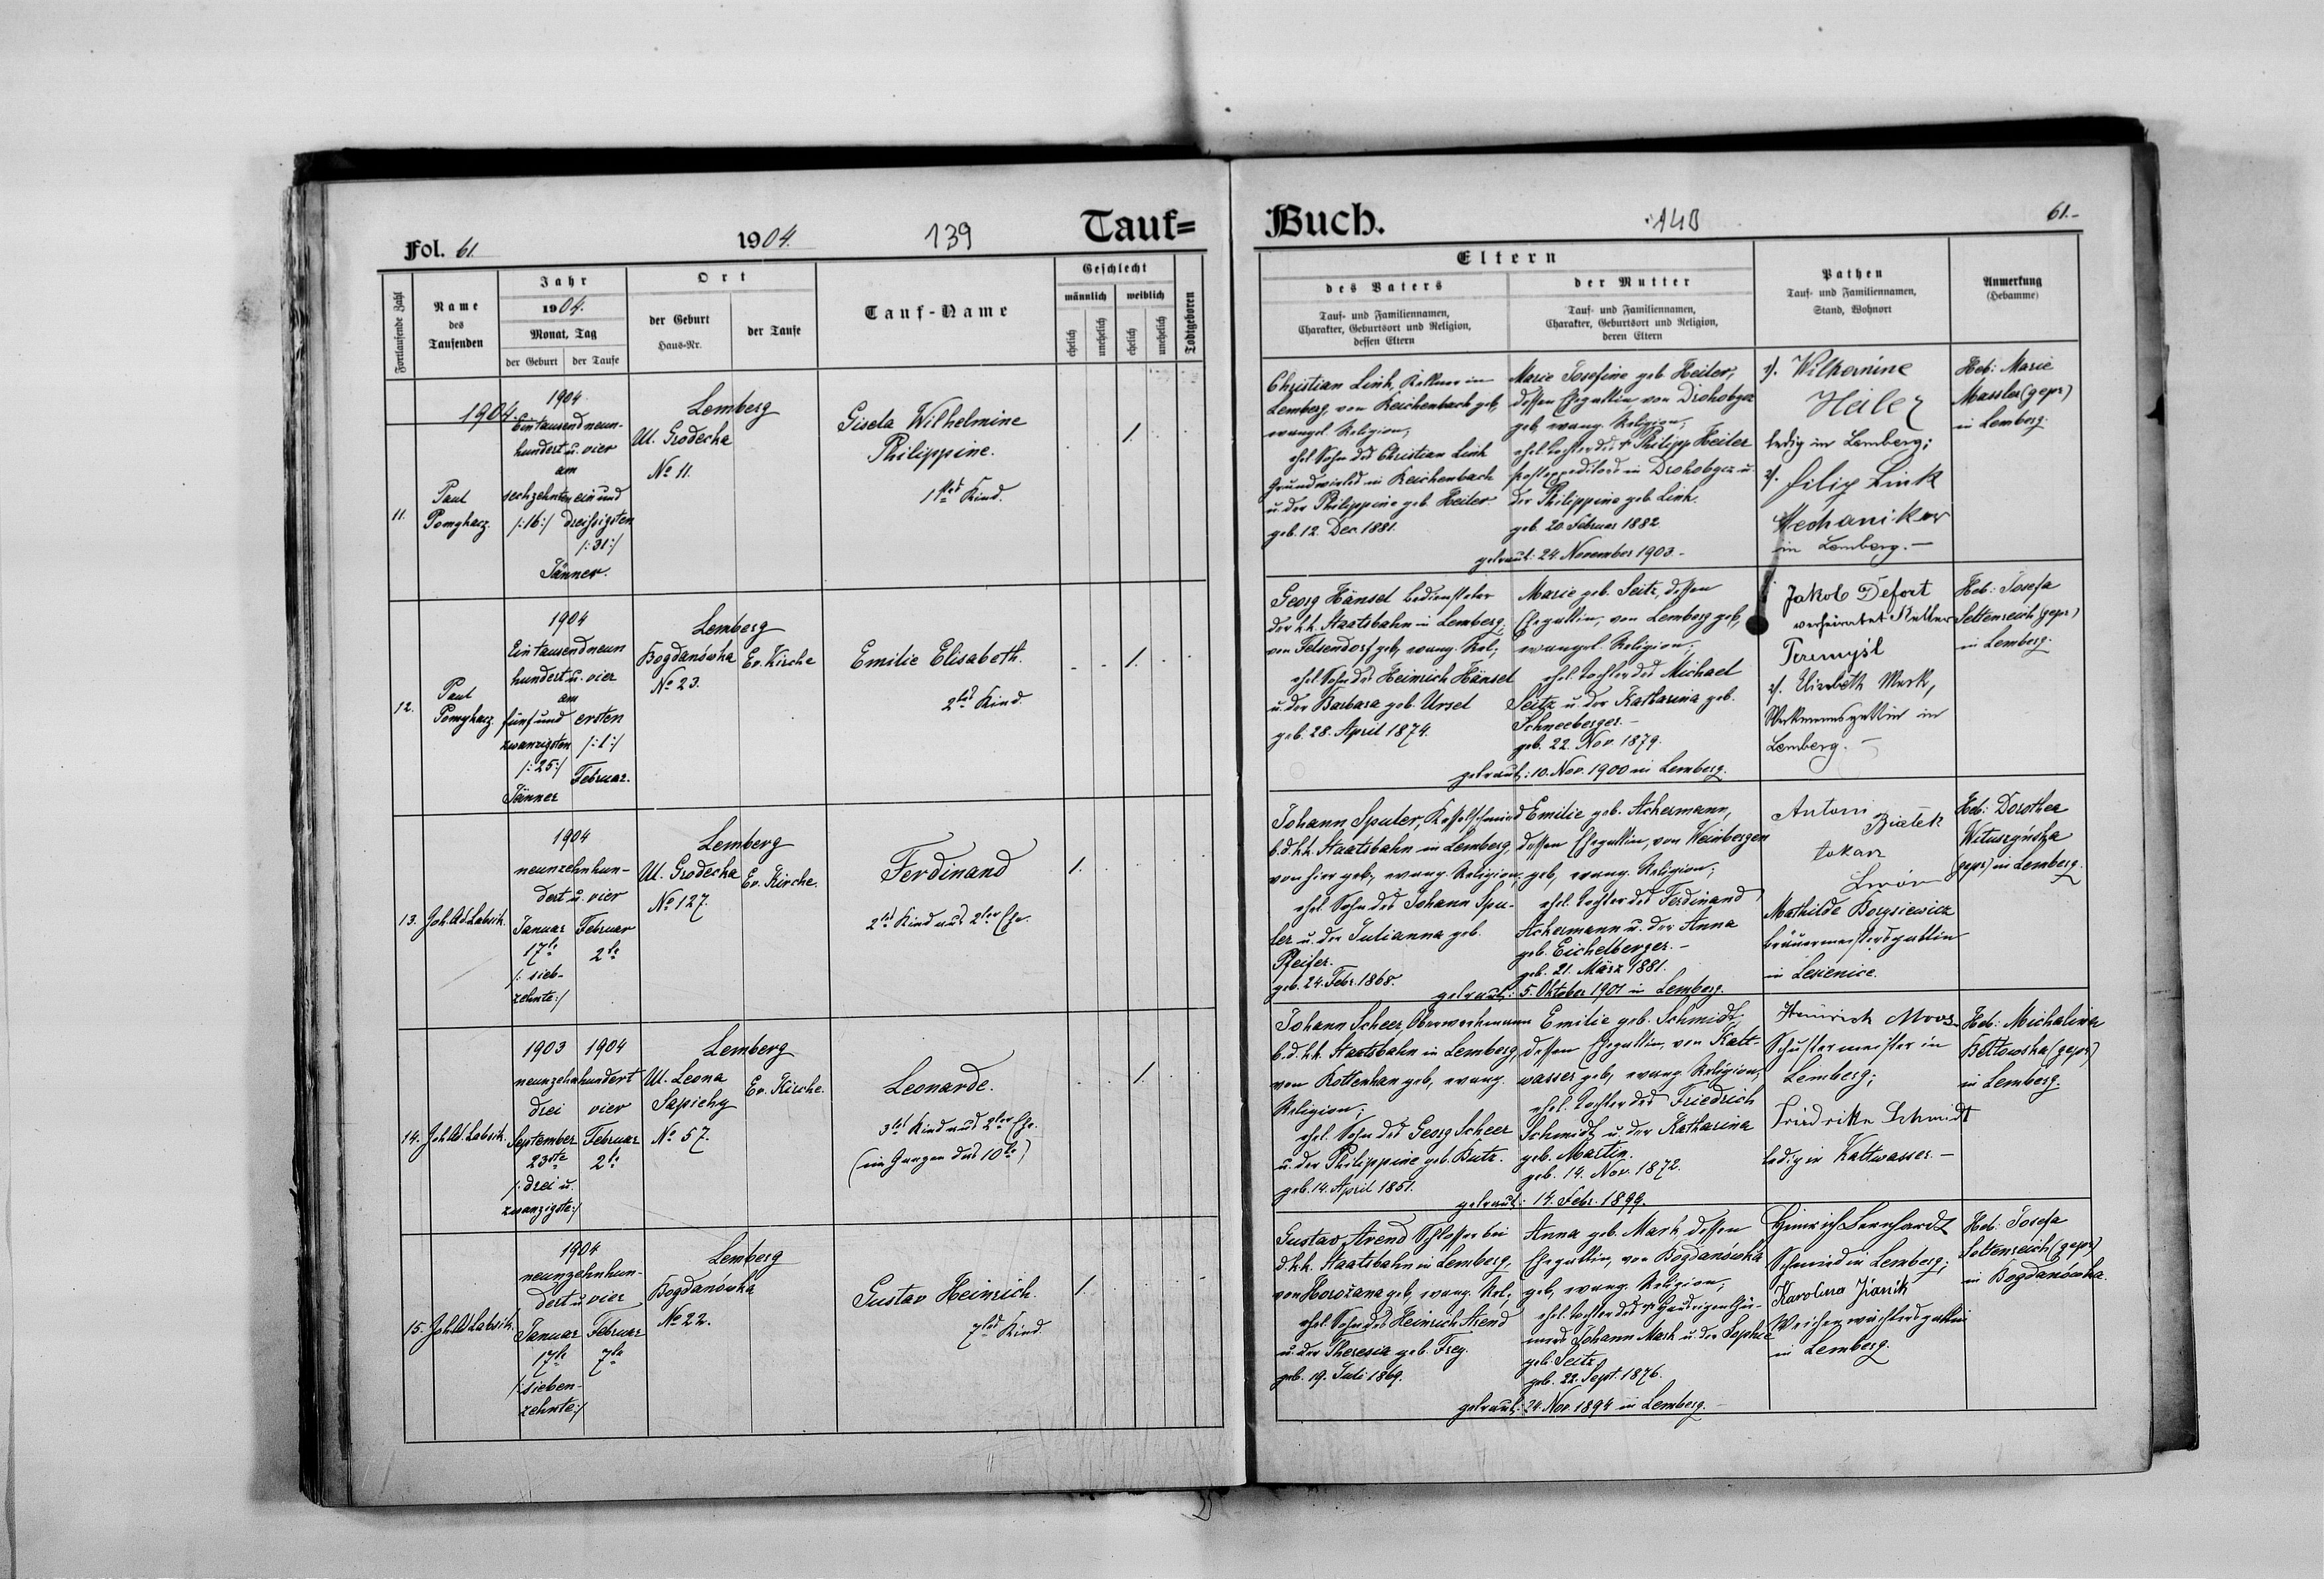 Fol. 61
1904.
139
Tauf=
Fortlaufende Zahl
Name
des
Taufenden
Jahr
1904.
Monat, Tag
der Geburt
der Taufe
Ort
der Geburt
Haus-Nr.
der Taufe
Tauf-Name
Geschlecht
männlich
weiblich
ehelich
unehelich
ehelich
unehelich
Todtgeboren
11.
Paul
Pomykacz.
1904.
1904
Eintausendneun-
hundert u. vier
am
sechzehnten ein und
/:16:/ dreissigsten
/:31:/
Jänner.
Lemberg
Ul. Grodecka
No 11.
Gisela Wilhelmine
Philippine.
1tes Kind.
1.
12.
Paul
Pomykacz.
1904
Eintausendneun
hundert u. vier
am
fünf und ersten
zwanzigsten /:1:/
/:25:/ Februar.
Jänner
Lemberg
Bogdanówka Ev. Kirche
No 23.
Emilie Elisabeth.
2tes Kind.
1.
13. Joh. Ad. Labsik.
1904
neunzehnhun-
dert u. vier
Januar Februar
17te 2te
/: sieb-
zehnte:/
Lemberg
Ul. Grodecka Ev. Kirche.
No 127.
Ferdinand
2tes Kind aus 2ter Ehe.
1.
14. Joh. Ad. Labsik.
1903 1904
neunzehnhundert
drei vier
September Februar
23ste 2te
/: drei u.
zwanzigste:/
Lemberg
Ul. Leona
Sapiehy Ev. Kirche.
No 57.
Leonarde.
3tes Kind aus 2ter Ehe.
(im Ganzen das 10te)
1.
15. Joh. Ad. Labsik.
1904
neunzehnhun-
dert u vier
Januar Februar
17te 7te
/:sieben-
zehnte:/
Lemberg
Bogdanówka
No 22.
Gustav Heinrich.
7tes Kind.
1.
Buch.
140
61.-
Eltern
des Vaters
Tauf- und Familiennamen,
Charakter, Geburtsort und Religion,
dessen Eltern
der Mutter
Tauf- und Familiennamen,
Charakter, Geburtsort und Religion,
deren Eltern
Pathen
Tauf- und Familiennamen,
Stand, Wohnort
Anmerkung
(Hebamme)
Christian Link, Kellner in
Lemberg, von Reichenbach geb,
evangel. Religion;
ehel. Sohn des Christian Link
Grundwirts in Reichenbach
u. der Philippine geb. Heiler.
geb. 12. Dec. 1881.
Marie Josefine geb. Heiler,
dessen Ehegattin von Drohobycz
geb, evang. Religion;
ehel. Tochter des Philipp Heiler
Postexpeditors in Drohobycz u.
der Philippine geb. Link.
geb. 20. Februar 1882.
getraut: 24. November 1903.-
Wilhemine
Heiler
ledig in Lemberg;
filip Link
Mechaniker
in Lemberg.-
Heb: Marie
Massler (gepr)
in Lemberg.
Georg Hänsel Bediensteter
der k.k. Staatsbahn in Lemberg,
von Felsendorf geb, evang. Rel.;
ehel. Sohn des Heinrich Hänsel
u. der Barbara geb. Ursel
geb. 28. April 1874.
Marie geb. Seitz, dessen
Ehegattin, von Lemberg geb,
evangel. Religion;
ehel. Tochter des Michael
Seitz u. der Katharina geb.
Schneeberger.-
geb. 22. Nov. 1879.
getraut: 10. Nov. 1900 in Lemberg.
Jakob Defort
verheiratet
Przemyśl
Elisabeth Merk,
in
Lemberg.-
Heb: Josefa
Seltenreich (gepr)
in Lemberg.
Johann Spuler, Kesselschmied
b. d. k.k. Staatsbahn in Lemberg,
von hier geb, evang. Religion;
ehel. Sohn des Johann Spu-
ler u. der Julianna geb.
Pfeifer.
geb. 24. Febr. 1868.
Emilie geb. Achermann,
dessen Ehegattin, von Weinbergen
geb, evang. Religion;
ehel. Tochter des Ferdinand
Achermann u. der Anna
geb. Eichelberger.-
geb. 21. März 1881.
getraut: 5. Oktober 1901 in Lemberg.
Antoni
Białek
tokarz
Lwów
Mathilde Borysiewicz
Bräuermeistersgattin
in Lesienice.
Heb: Dorothea
Wituszyńska
(gepr) in Lemberg.
Johann Scheer, Oberwerkmann
b. d. k.k. Staatsbahn in Lemberg,
von Rottenhan geb, evang.
Religion;
ehel. Sohn des Georg Scheer
u. der Philippine geb. Butz.
geb. 14. April 1851.
Emilie geb. Schmidt,
dessen Ehegattin, von Kalt-
wasser geb, evang. Religion;
ehel. Tochter des Friedrich
Schmidt u. der Katharina
geb. Martin.
geb. 14. Nov. 1872.
getraut: 14. Febr. 1899.
Heinrich Moos
Schustermeister in
Lemberg;
Fridrike Schmidt
ledig in Kaltwasser.-
Heb: Michalina
Bełtowska (gepr)
in Lemberg.
Gustav Arend Schlosser bei
d. k.k. Staatsbahn in Lemberg,
von Horożana geb, evang. Rel.;
ehel. Sohn des Heinrich Arend
u. der Theresia geb. Frey.
geb. 19. Juli 1869.
Anna geb. Mark, dessen
Ehegattin, von Bogdanówka
geb, evang. Religion;
ehel. Tochter des
Johann Mark u. der Sophie
geb. Seitz
geb. 22. Sept. 1876.
getraut: 24. Nov. 1894 in Lemberg.-
Heinrich Bernhardt
Schmied in Lemberg;
Karolina
Weichenwächtersgattin
in Lemberg.
Heb: Josefa
Seltenreich (gepr)
in Bogdanówka.